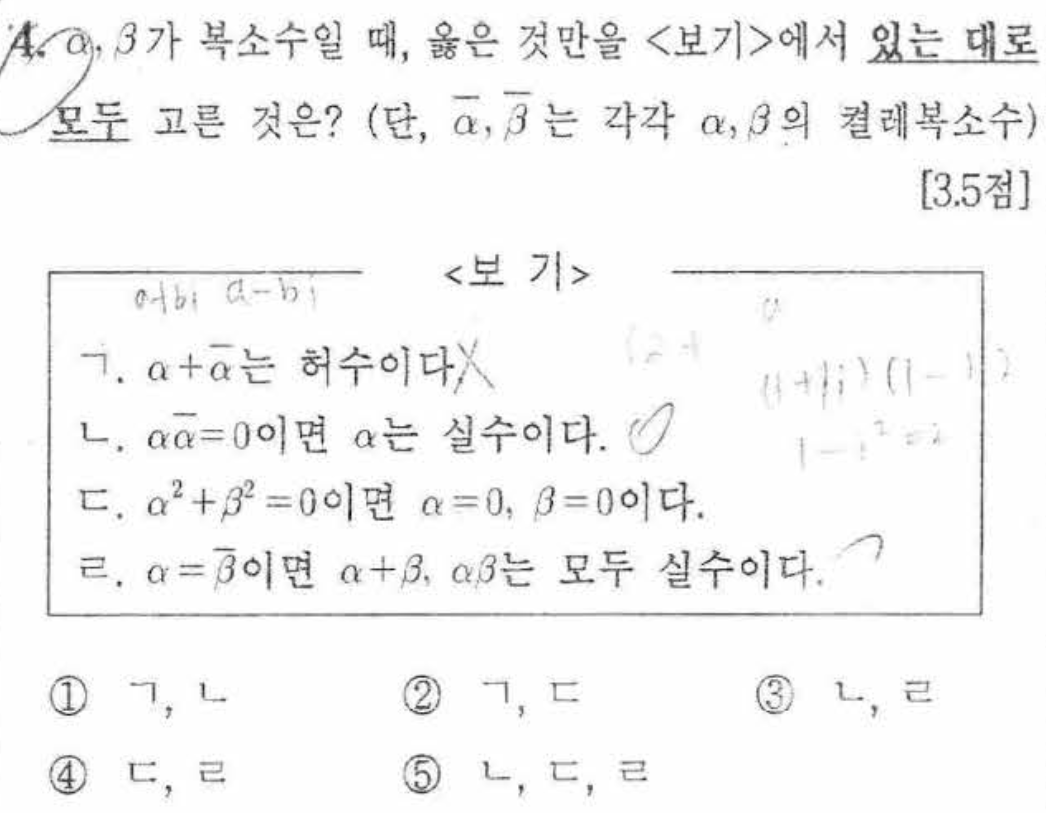 4. α, β가 복소수일 때, 옳은 것만을 <보기>에서 있는 대로
모두 고른 것은? (단, ᾱ, β̄는 각각 α, β의 켤레복소수)
[3.5점]
<보 기>
a+bi a-bi
ㄱ. α+ᾱ는 허수이다.
ㄴ. αᾱ=0이면 α는 실수이다.
ㄷ. α²+β²=0이면 α=0, β=0이다.
ㄹ. α=β̄이면 α+β, αβ는 모두 실수이다.
① ㄱ, ㄴ ② ㄱ, ㄷ ③ ㄴ, ㄹ
④ ㄷ, ㄹ ⑤ ㄴ, ㄷ, ㄹ